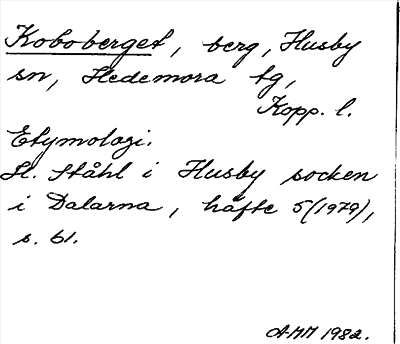 Koboberget, berg, Husby
sn, Hedemora tg,
Kopp. l.
Etymologi.
H. Ståhl i Husby socken
i Dalarna, häfte 5 (1979),
s. 61.
AMM 1982.